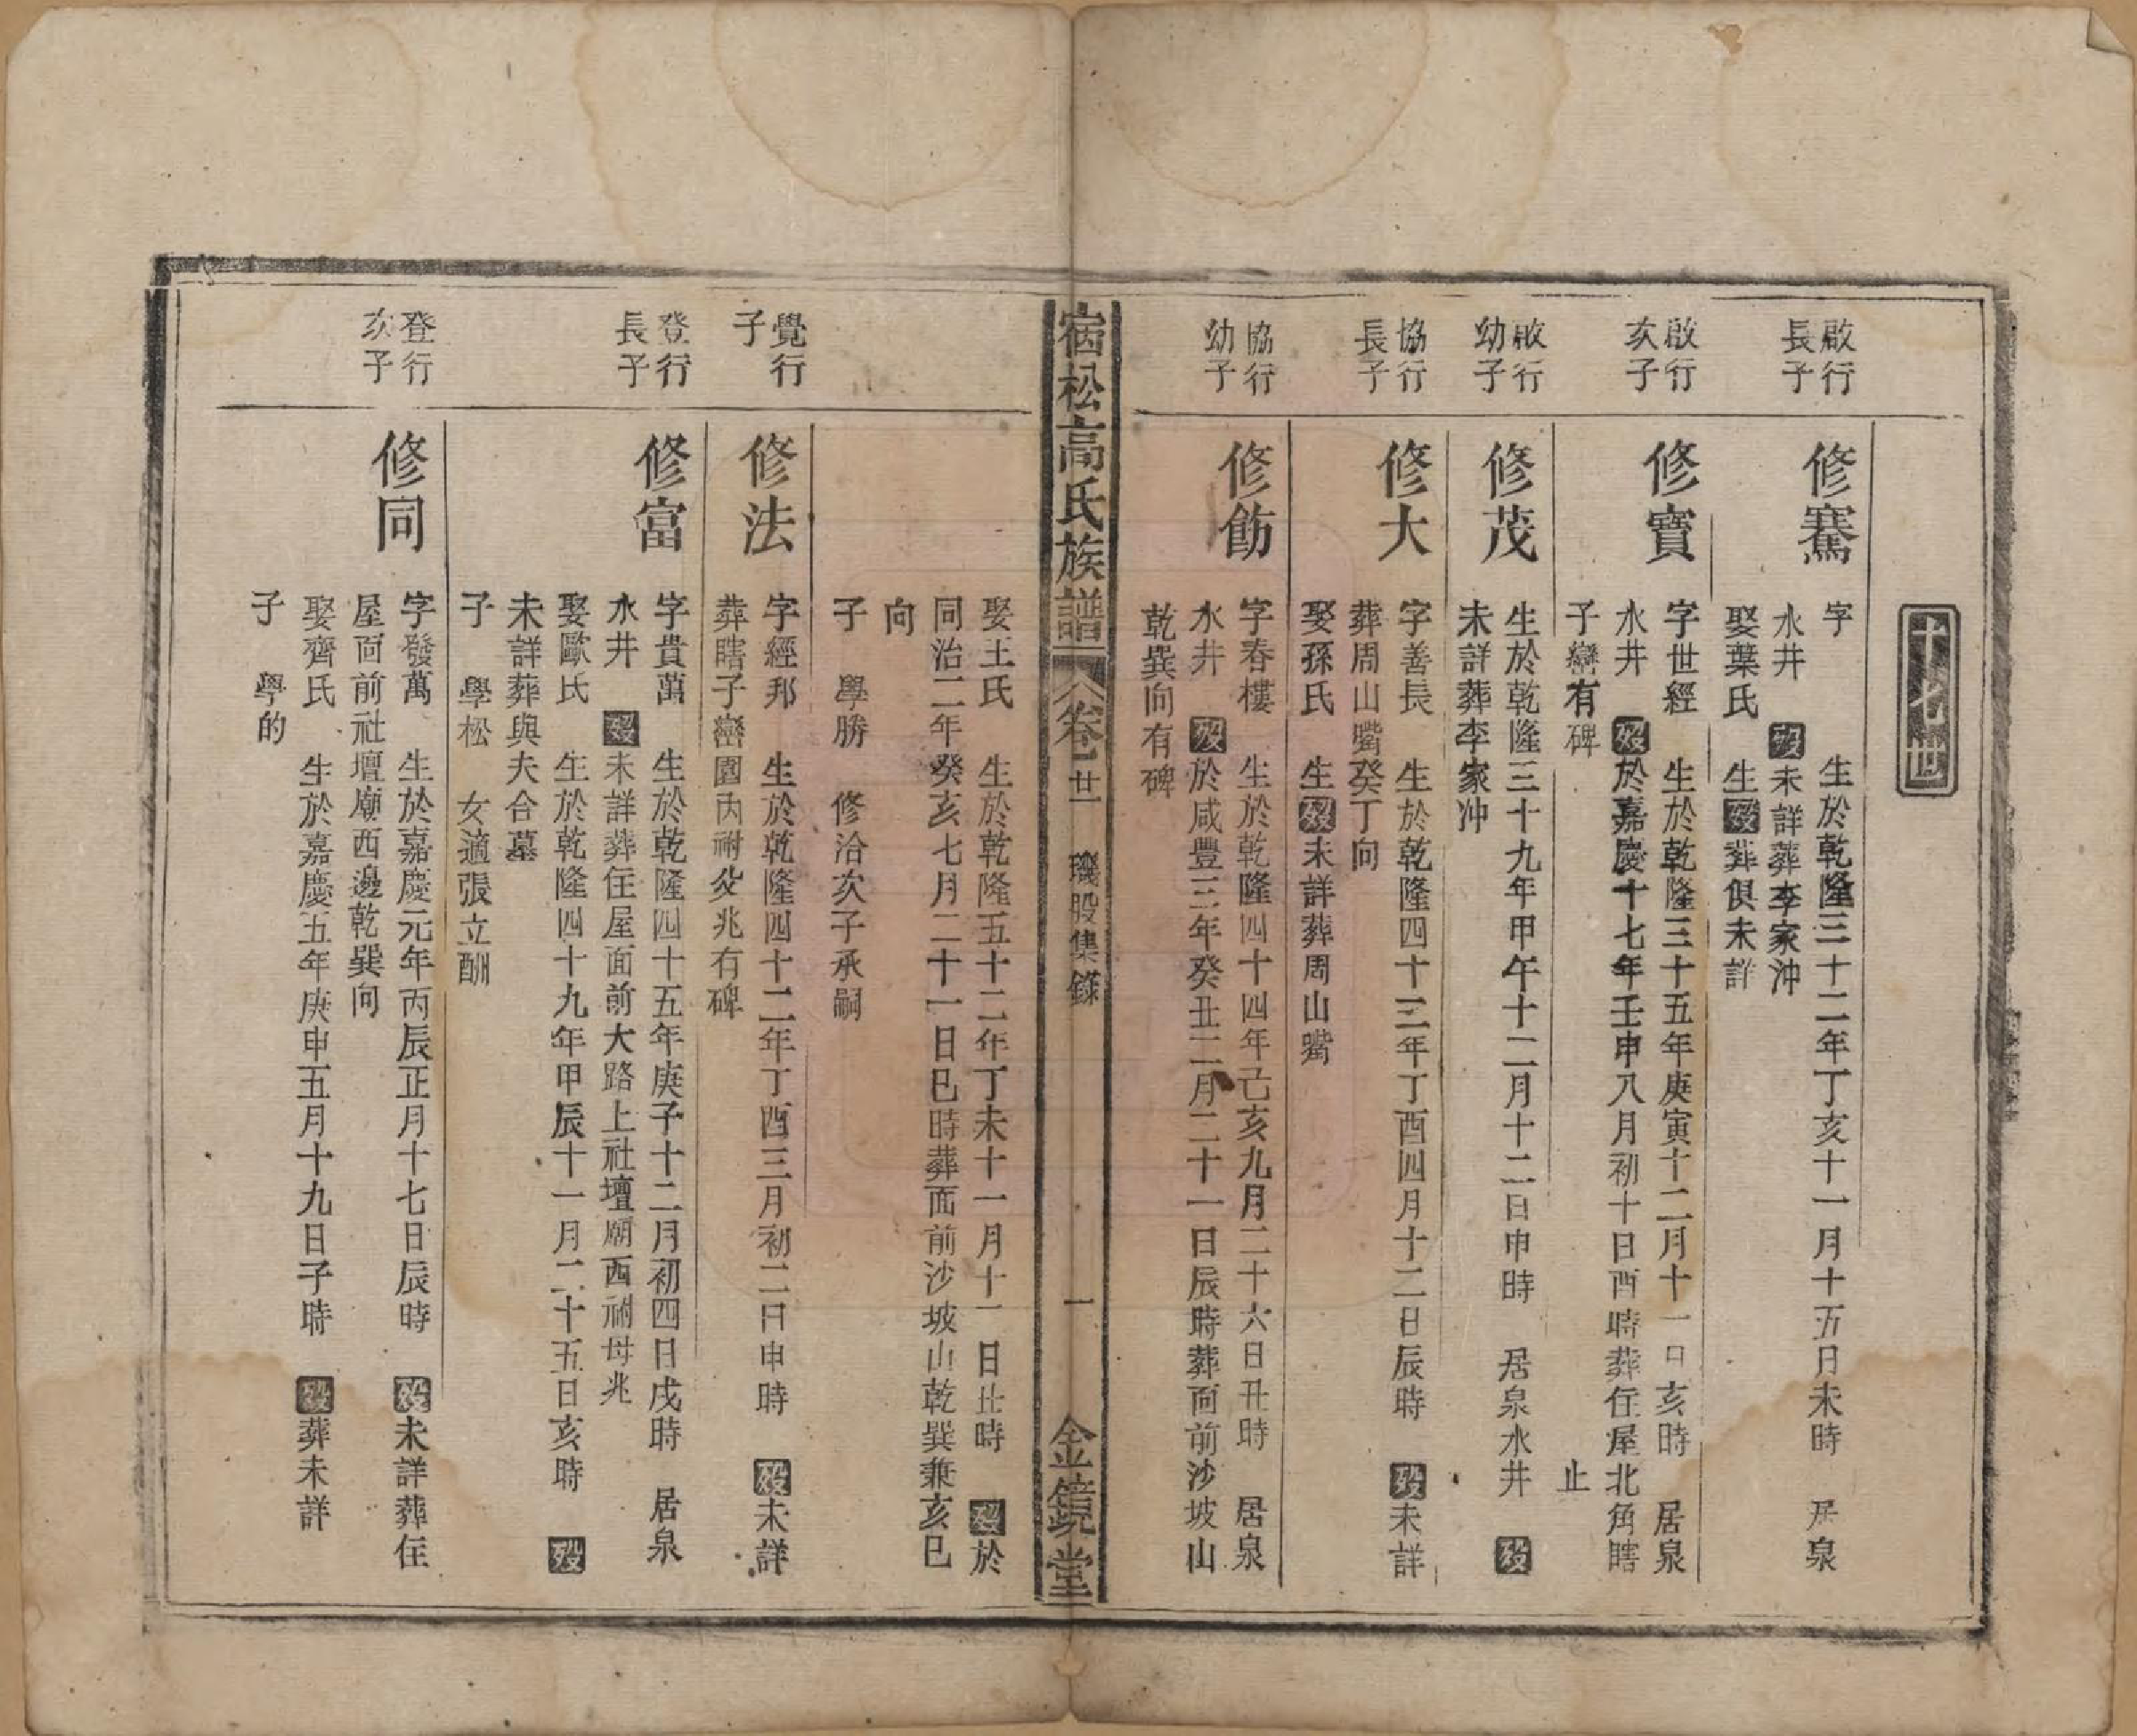 十七世
啟行
長子
修騫
字　生於乾隆三十二年丁亥十一月十五日未時　居泉
水井　歿未詳葬李家沖
娶葉氏　生歿葬俱未詳
啟行
次子
修寶
字世經　生於乾隆三十五年庚寅十二月十一日亥時　居泉
水井　歿於嘉慶十七年壬申八月初十日酉時葬住屋北角瞎
子巒有碑　止
啟行
幼子
修茂
生於乾隆三十九年甲午十二月十二日申時　居泉水井　歿
未詳葬李家冲
協行
長子
修大
字善長　生於乾隆四十三年丁酉四月十二日辰時　歿未詳
葬周山嘴癸丁向
娶孫氏　生歿未詳葬周山嘴
協行
幼子
修飭
字春樓　生於乾隆四十四年己亥九月二十六日丑時　居泉
水井　歿於咸豐三年癸丑二月二十一日辰時葬面前沙坡山
乾巽向有碑
宿松高氏族譜
卷廿一　璣股集錄　一　金鏡堂
娶王氏　生於乾隆五十二年丁未十一月十一日丑時　歿於
同治二年癸亥七月二十一日巳時葬面前沙坡山乾巽兼亥巳
向
子　學勝　修洽次子承嗣
覺行
子
修法
字經邦　生於乾隆四十二年丁酉三月初二日申時　歿未詳
葬瞎子巒園內祔父兆有碑
登行
長子
修富
字貴萬　生於乾隆四十五年庚子十二月初四日戌時　居泉
水井　歿未詳葬住屋面前大路上社壇廟西祔母兆
娶歐氏　生於乾隆四十九年甲辰十一月二十五日亥時　歿
未詳葬與夫合墓
子　學松　女適張立酬
登行
次子
修同
字發萬　生於嘉慶元年丙辰正月十七日辰時　歿未詳葬住
屋面前社壇廟西邊乾巽向
娶齊氏　生於嘉慶五年庚申五月十九日子時　歿葬未詳
子　學的